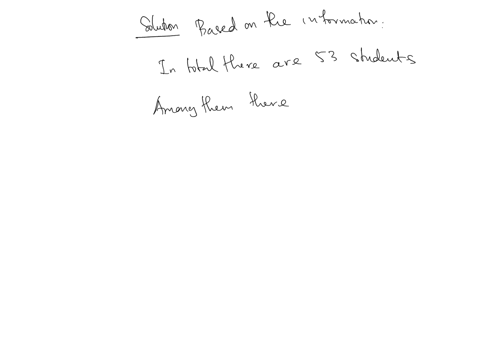 Solution Based on the information.
In total there are 53 students
Among them there